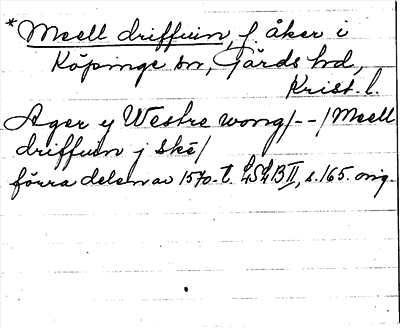 *Meell driffuin, f. åker i
Köpinge sn, Gärds hd,
Krist. l.
Ager y Westre wong/--/Meell
driffuin j ske/
förra delen av 1570-t. LSLB II, s. 165. orig.